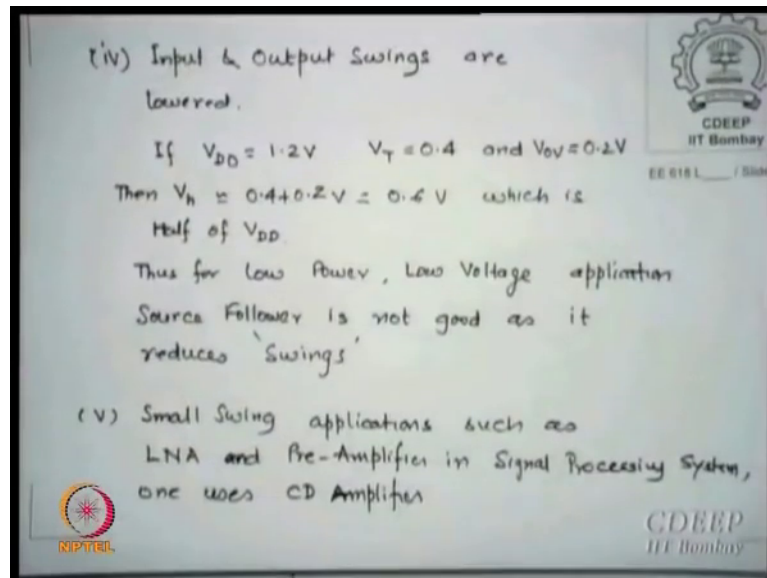 (iv) Input & Output Swings are
lowered.
If VDD = 1.2V VT = 0.4 and VOV = 0.2V
Then Vh ≅ 0.4+0.2V = 0.6 V which is
Half of VDD.
Thus for Low Power, Low Voltage application
Source Follower is not good as it
reduces 'Swings'
(v) Small Swing applications such as
LNA and Pre-Amplifier in Signal Processing System,
one uses CD Amplifier
CDEEP
IIT Bombay
EE 618 L____ / Slide
NPTEL
CDEEP
IIT Bombay